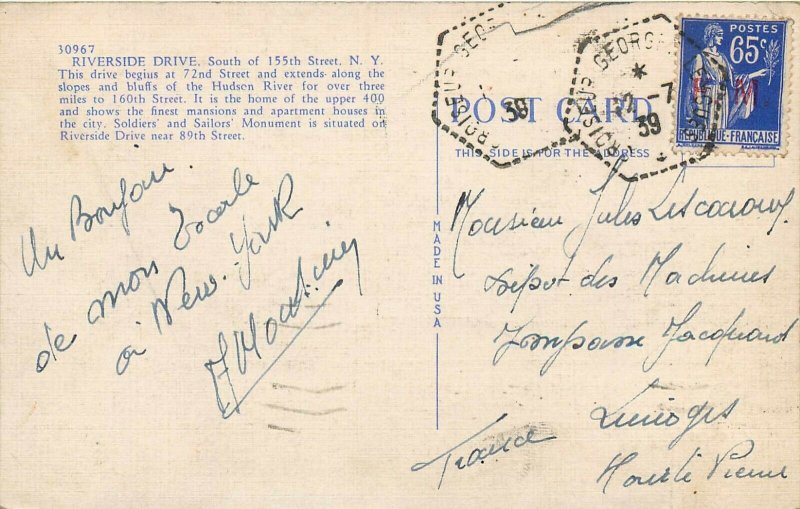 30967
RIVERSIDE DRIVE, South of 155th Street, N. Y.
This drive begins at 72nd Street and extends along the
slopes and bluffs of the Hudson River for over three
miles to 160th Street. It is the home of the upper 400
and shows the finest mansions and apartment houses in
the city. Soldiers' and Sailors' Monument is situated on
Riverside Drive near 89th Street.
Un Bonjour
de mon Escale
à New-York
POST CARD
THIS SIDE IS FOR THE ADDRESS
MADE IN USA
POSTES
65c
F M
REPUBLIQUE-FRANÇAISE
CROISEUR GEORGES
39
CROISEUR GEORGES
-7
39
Monsieur Jules
Dépot des Machines
Impasse Jacquard
Limoges
France
Haute Vienne